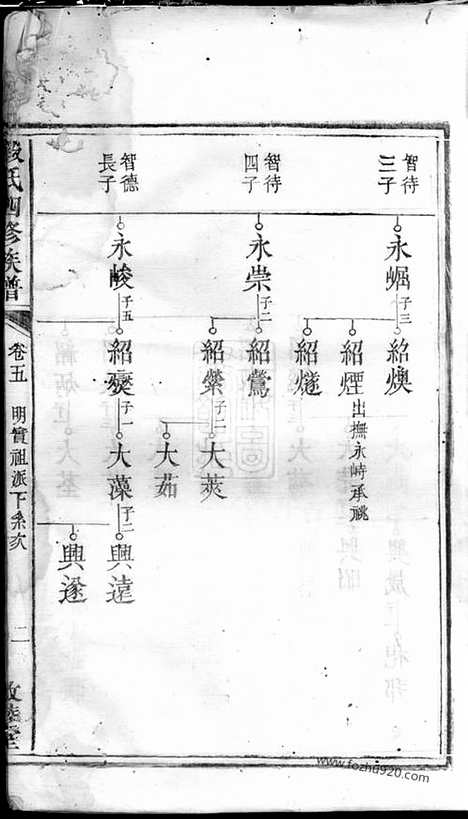 智待
三子
永崛
子三
紹煥
紹煙
出撫永峙承祧
紹燧
智待
四子
永崇
子二
紹鶯
紹縈
子二
大莢
大茹
智德
長子
永峻
子五
紹
子一
大藻
子二
興遠
興邃
氏四修族譜
卷五
明實祖派下系次
二
敦睦堂
www.fozhu920.com